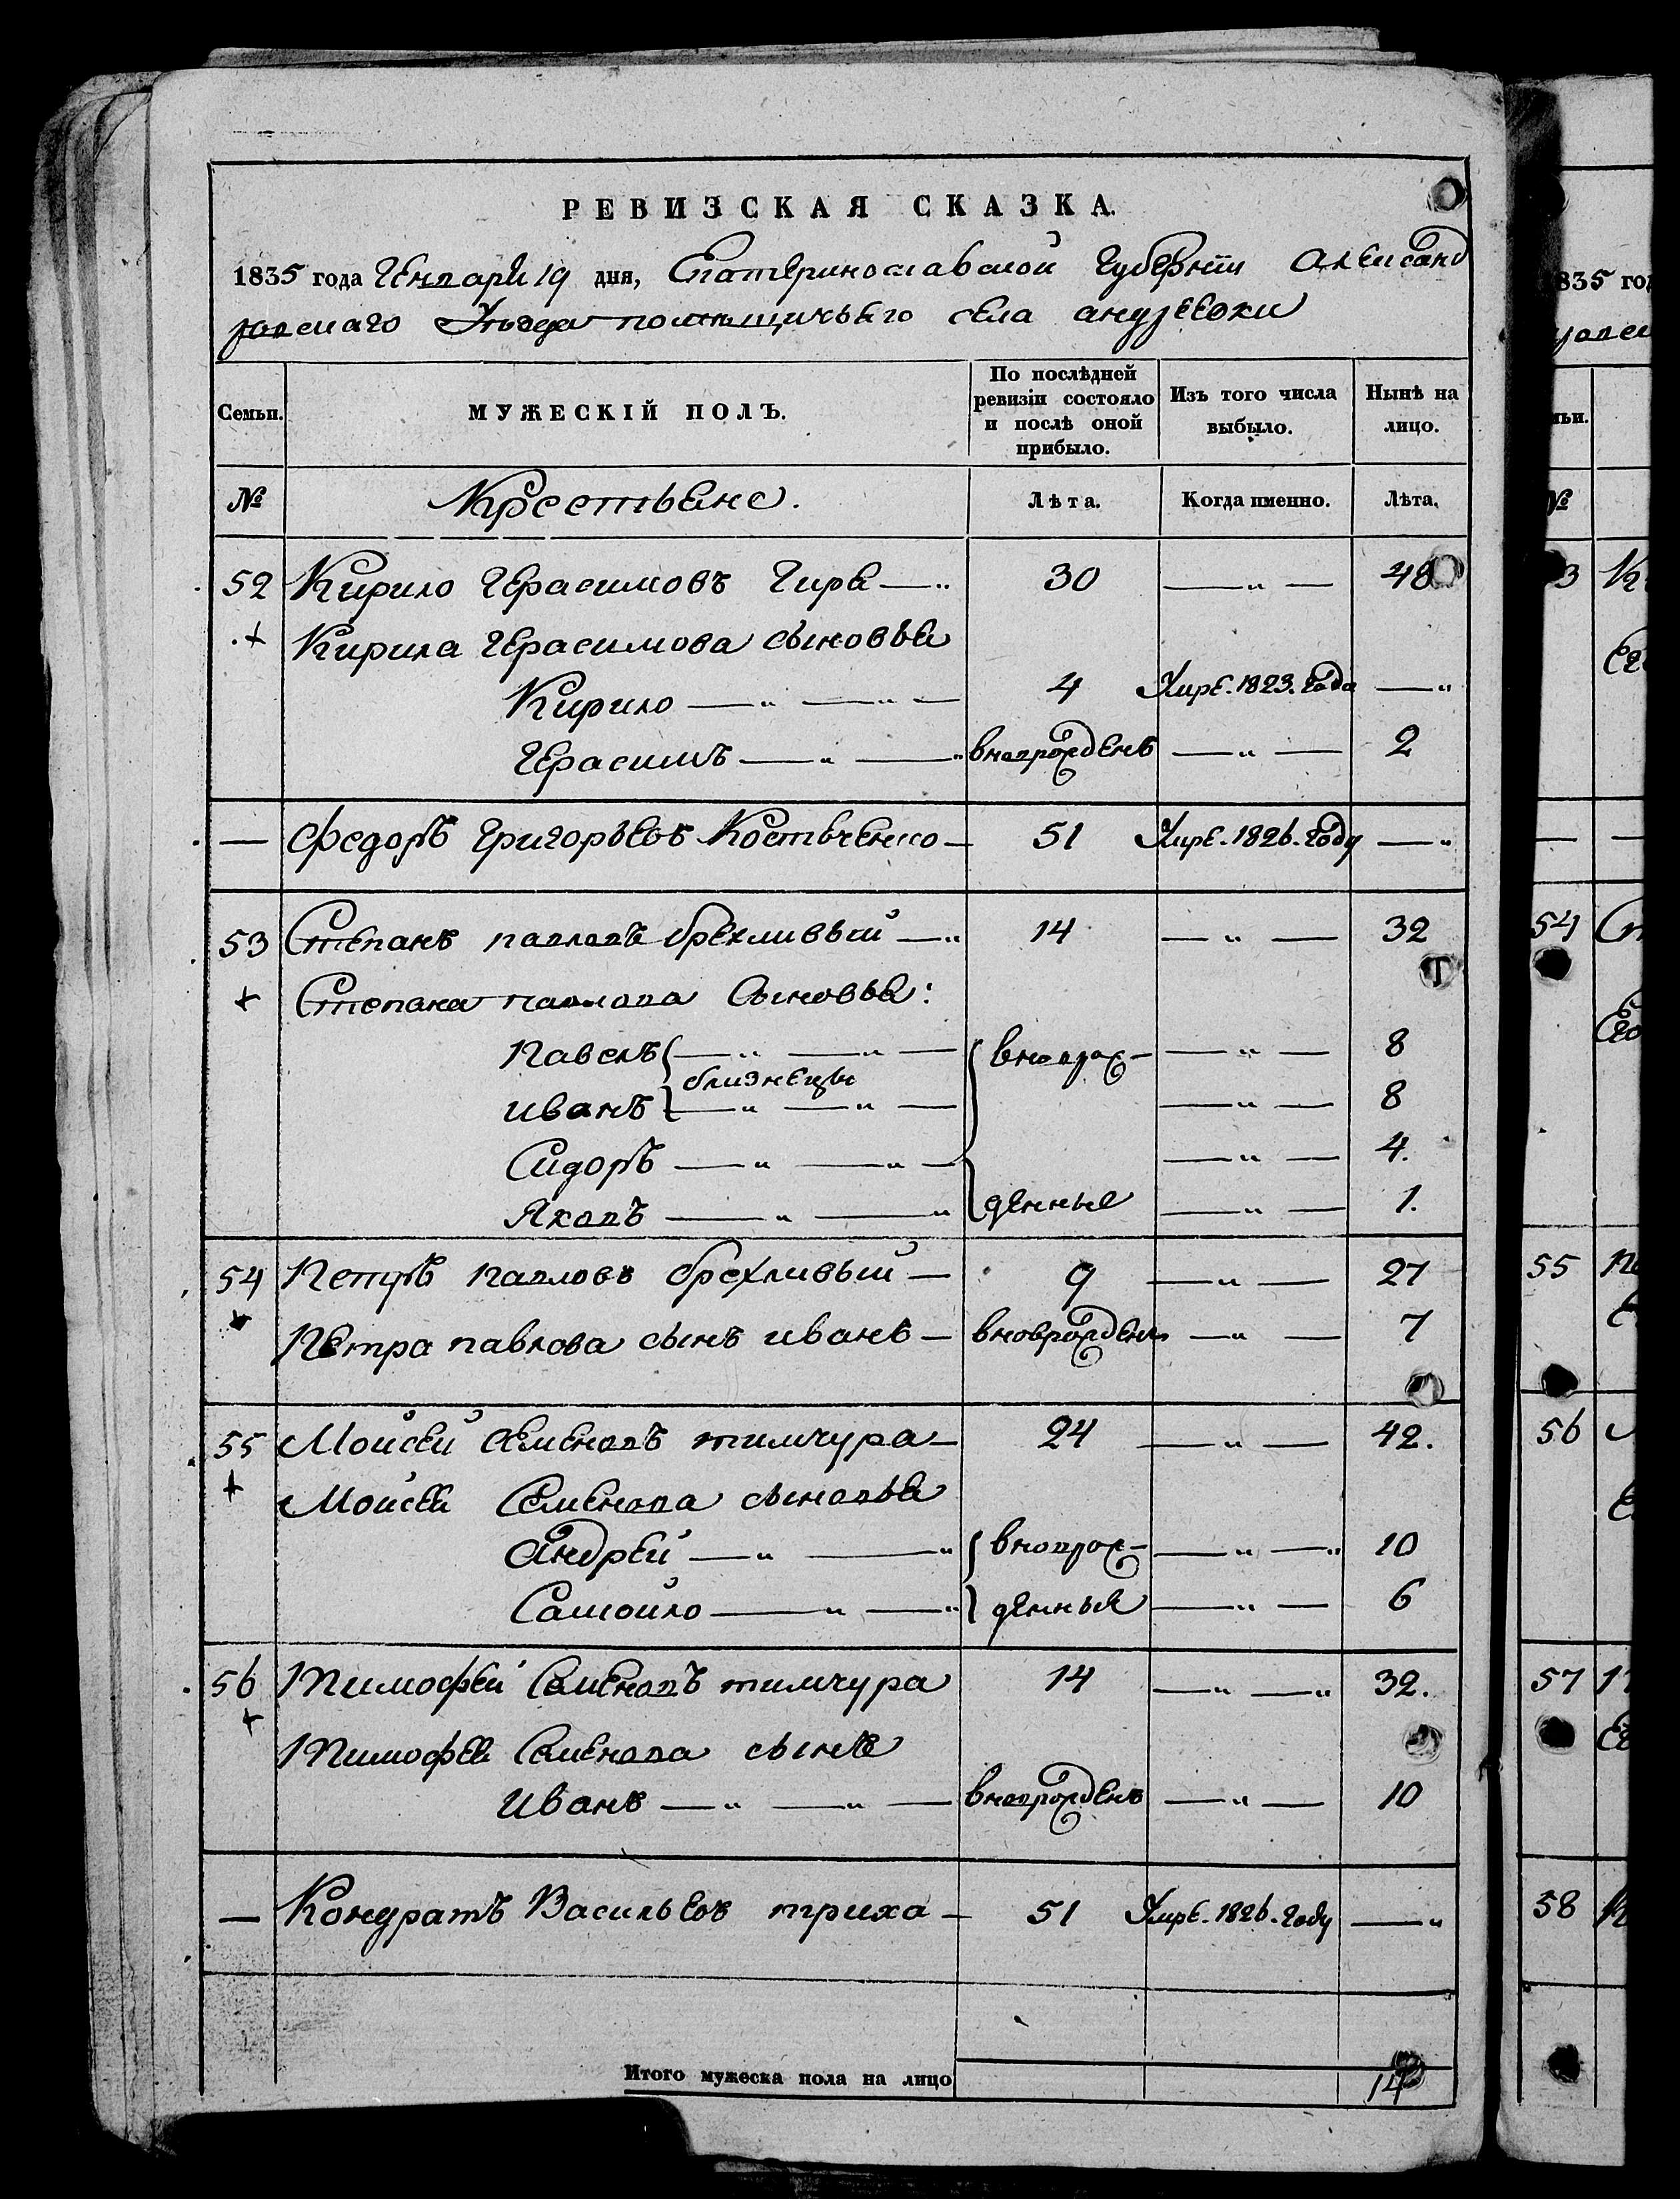 РЕВИЗСКАЯ СКАЗКА.
1835 года Генваря 19 дня, Екатеринославской Губерніи Александ
ровскаго Уѣзда помѣщичьяго села андреевки
Семьи. МУЖЕСКІЙ ПОЛЪ. По послѣдней ревизіи состояло и послѣ оной прибыло. Изъ того числа выбыло. Нынѣ на лицо.
№ Крестьяне. Лѣта. Когда именно. Лѣта.
52 Кирило Герасимовъ Гиря —„ 30 —„— 48
+ Кирила Герасимова сыновья
Кирило —„ —„— 4 Умре. 1823. года —„
Герасимъ —„ —„ вноврожденъ —„— 2
— Федоръ Григорьевъ Костюченко — 51 Умре. 1826. году —„
53 Степанъ павловъ брехливый —„ 14 —„— 32
+ Степана павлова Сыновья:
Павелъ { —„ —„— { вноврож- —„— 8
близнецы
иванъ { —„ —„— —„— 8
Сидоръ —„ —„— —„— 4.
Яковъ —„ —„ денные —„— 1.
54 Петръ павловъ брехливый — 9 —„— 27
+ Петра павлова сынъ иванъ — вноврожденъ —„— 7
55 Моисей Семеновъ тимчура — 24 —„— 42.
+ Моисея Семенова сыновья
Андрей —„ —„ { вноврож- —„ —„ 10
Самойло —„ —„ } денныя —„— 6
56 Тимофей Семеновъ тимчура 14 —„ —„ 32.
+ Тимофея Семенова сынъ
Иванъ —„ —„— вноврожденъ —„— 10
— Кондратъ Васильевъ триха — 51 Умре. 1826. году —„
Итого мужеска пола на лицо 14
835 го
54
55
56
57
58